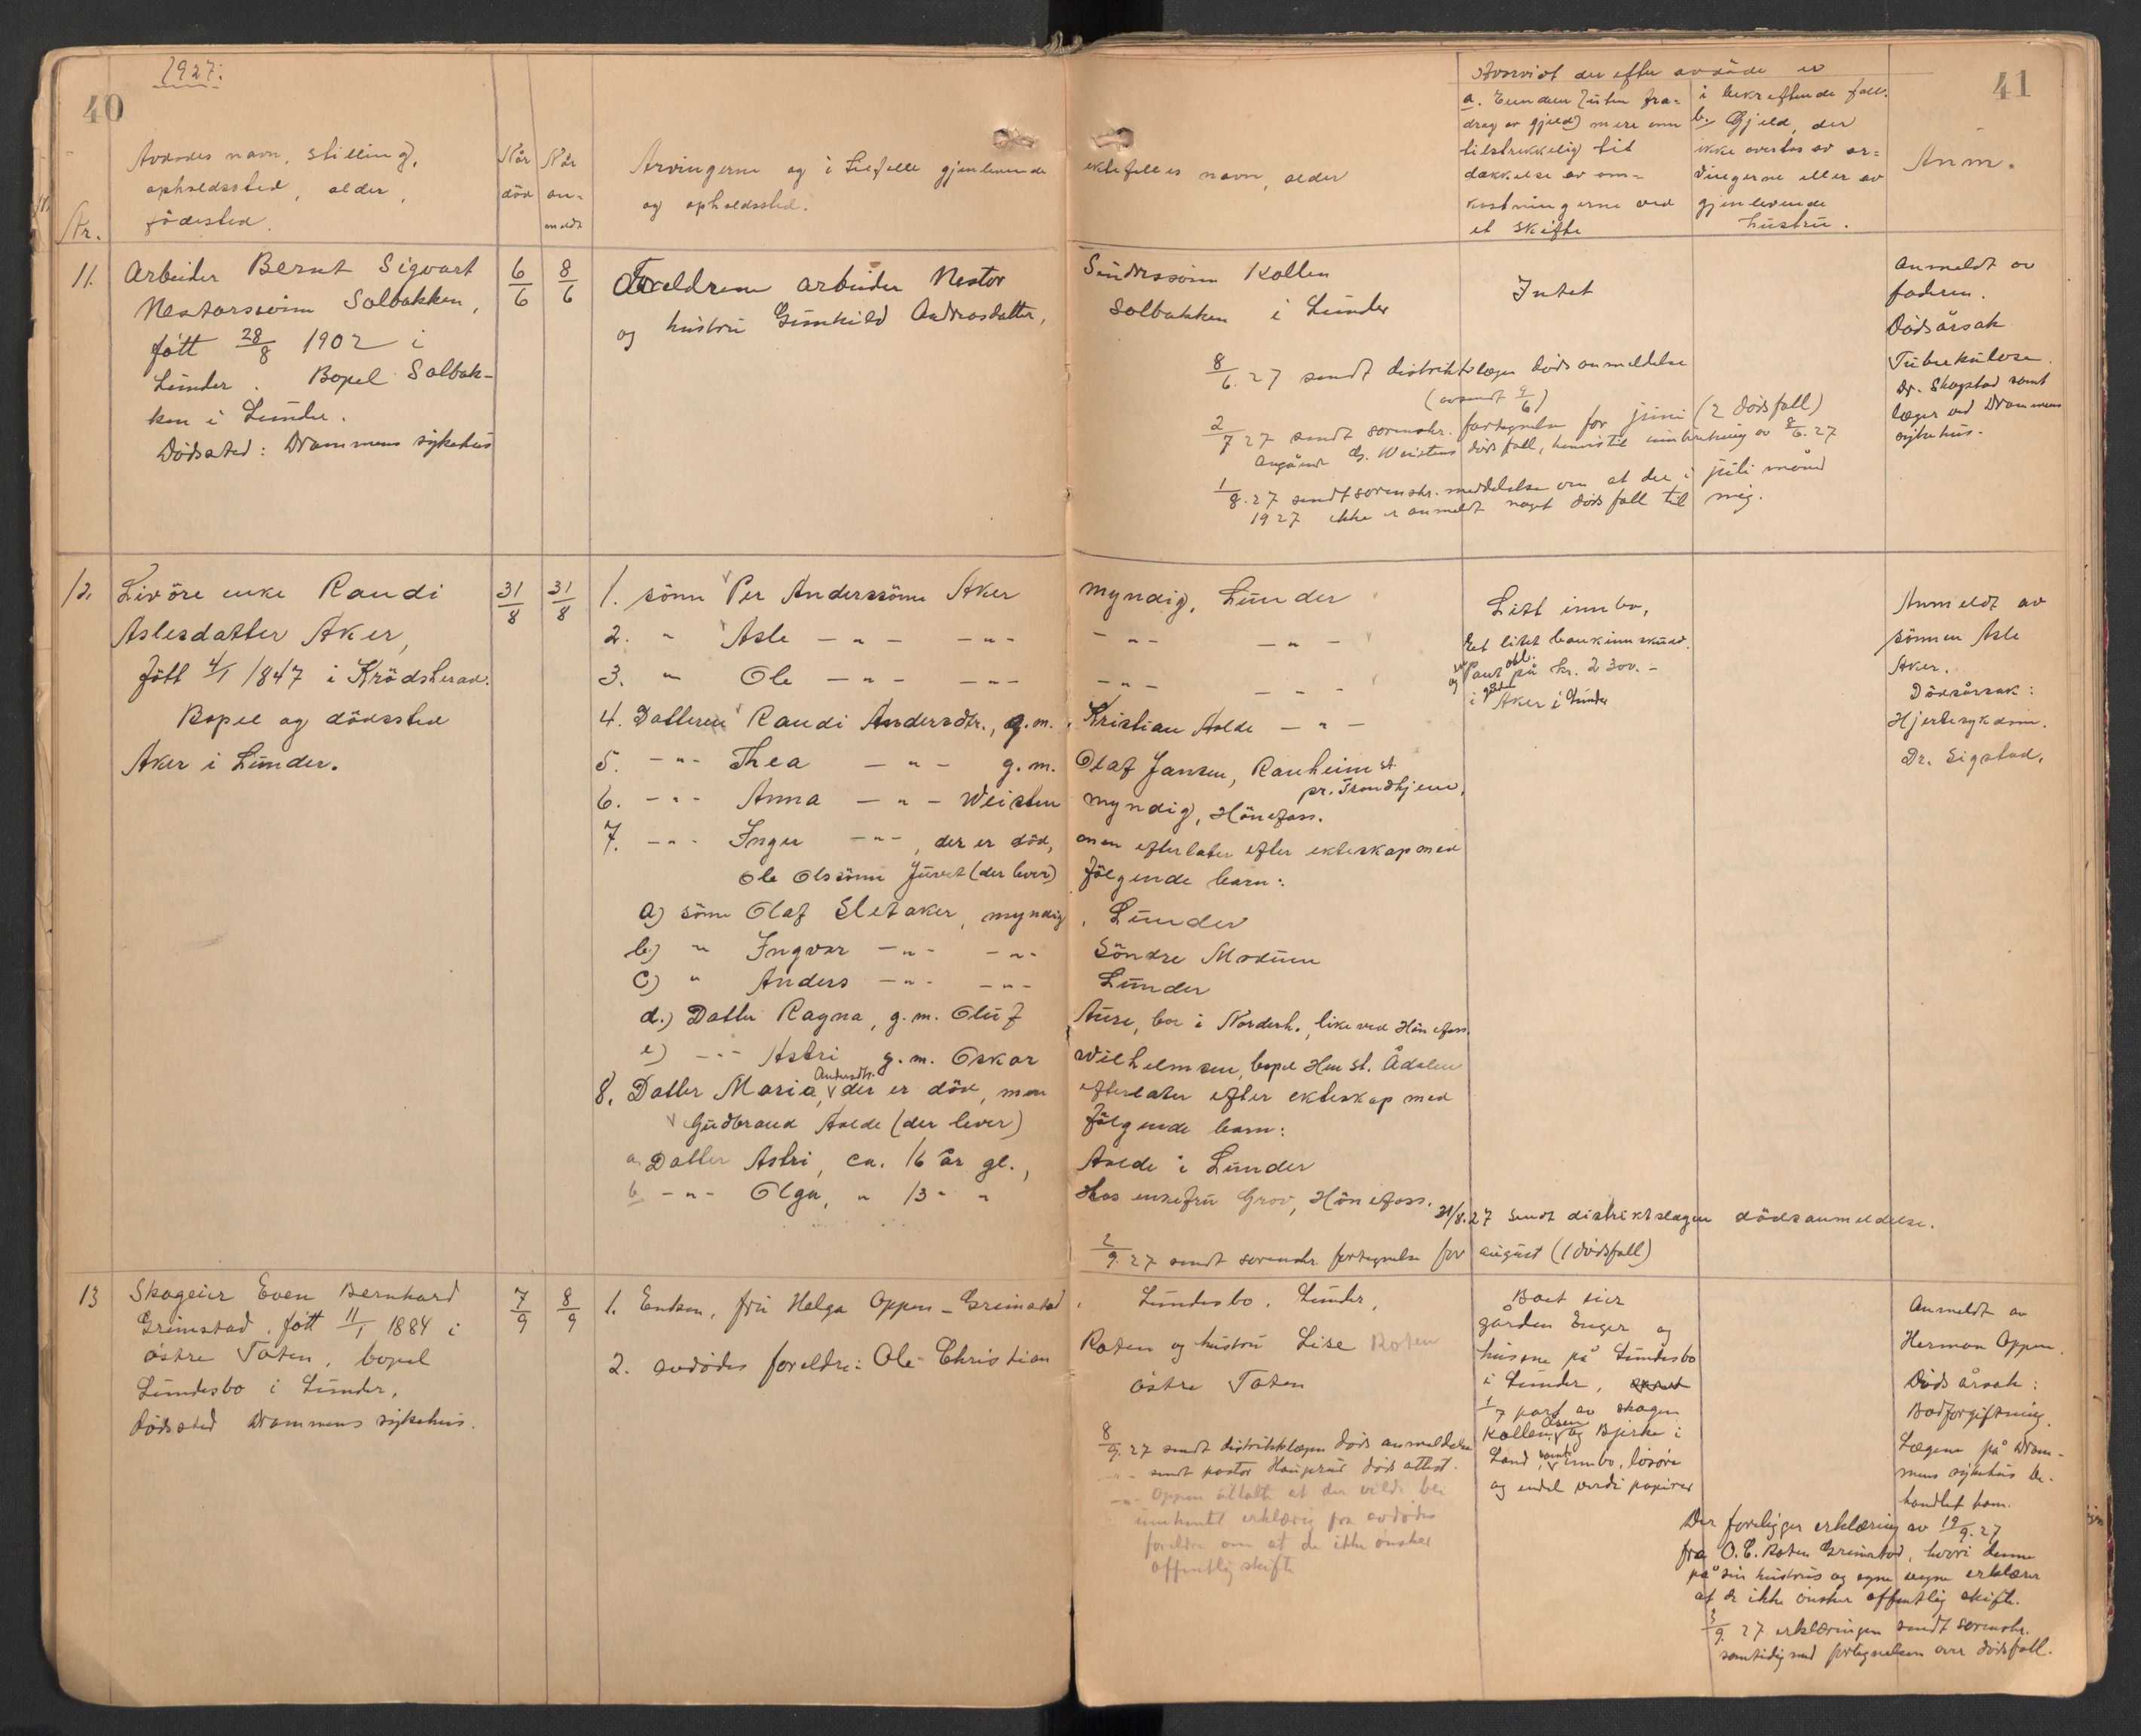 1927.
40
Nr.
Avdødes navn, stilling,
opholdssted, alder,
fødested.
Når
død
Når
an-
meldt
Arvingerne og i tilfelle gjenlevende ektefelles navn, alder
og opholdssted.
Hvorvidt der efter avdøde er
a. Eiendeler (uten fra-
drag av gjeld) mere enn
tilstrekkelig til
dækkelse av om-
kostningerne ved
et skifte
i bekreftende fall.
b. Gjeld, der
ikke overtas av ar-
vingerne eller av
gjenlevende
hustru.
Anm.
41
11.
Arbeider Bernt Sigvart
Nestorssønn Solbakken,
født 28/8 1902 i
Lunder. Bopel Solbak-
ken i Lunder.
Dødssted: Drammens sykehus
6/6
8/6
Foreldrene arbeider Nestor Kollen
og hustru Gunhild Andrasdatter, Solbakken i Lunder
Intet
8/6.27 sendt distriktslægen dødsanmeldelse
(avsendt 9/6)
2/7 27 sendt sorenskr. fortegnelse for juni (2 dødsfall)
Angående Weistens dødsfall, henvist til innberetning av 8/6.27
1/8.27 sendt sorenskr. meddelelse om at der i juli måned
1927 ikke er anmeldt noget dødsfall til mig.
Anmeldt av
faderen.
Dødsårsak
Tuberkulose.
Dr. Skogstad samt
læger ved Drammens
sykehus.
12.
Livøre enke Randi
Aslesdatter Aker,
født 4/1 1847 i Krødsherad.
Bopel og dødssted
Aker i Lunder.
31/8
31/8
1. sønn Per Anderssønn Aker myndig, Lunder
2. " Asle -"- -"- -"- -"-
3. " Ole -"- -"- -"- -"-
4. Datteren Randi Andersdtr., g.m. Kristian Avlde -"-
5. -"- Thea -"- g.m. Olaf Jansen, Ranheim st.
pr. Trondhjem.
6. -"- Anna -"- Weisten myndig, Hønefoss.
7. -"- Inger -"-, der er død, men efterlater efter ekteskap med
Ole Olssønn Juvet (der lever) følgende barn:
a) sønn Olaf Sletaker, myndig, Lunder
b) " Ingvar -"- -"- Søndre Modum
c) " Anders -"- -"- Lunder
d.) Datter Ragna, g.m. Oluf Aure, bor i Norderh., like ved Hønefoss.
e) -"- Astri g.m. Oskar Wilhelmsen, bopel Hen st. Ådalen
8. Datter Maria Andersdtr., der er død, men efterlater efter ekteskap med
Gudbrand Avlde (der lever) følgende barn:
a. Datter Astri, ca. 16 år gl., Avlde i Lunder
b. -"- Olga, " 13 " " Hos enkefru Grov, Hønefoss.
Litt innbo,
Et litet bankinnskud.
og en Pant obl. på kr. 2300.-
i gården Aker i Lunder
31/8.27 sendt distriktslægen dødsanmeldelse.
2/9.27 sendt sorenskr. fortegnelse for august (1 dødsfall)
Anmeldt av
sønnen Asle
Aker.
Dødsårsak:
Hjertesykdom.
Dr. Sigstad.
13
Skogeier Even Bernhard
Grimstad, født 11/1 1884 i
østre Toten, bopel
Lundesbo i Lunder,
Dødssted Drammens sykehus.
7/9
8/9
1. Enken, fru Helga Oppen-Grimstad, Lundesbo, Lunder,
2. avdødes foreldre: Ole Christian Roten og hustru Lise Roten
østre Toten
8/9.27 sendt distriktslægen dødsanmeldelse
-"- sendt pastor Haugsrud dødsattest.
-"- Oppen uttalte at der vilde bli
innhentet erklæring fra avdødes
foreldre om at de ikke ønsker
offentlig skifte
Boet eier
gården Enger og
husene på Lundesbo
i Lunder,
1/7 part av skogen
Kollen, Åsen og Bjerke i
Land, samt innbo, løsøre
og endel verdipapirer
Anmeldt av
Herman Oppen.
Dødsårsak:
Blodforgiftning.
Lægene på Dram-
mens sykehus be-
handlet ham.
Der foreligger erklæring av 19/9.27
fra O.C. Roten Grimstad, hvori denne
på sin hustrus og egne vegne erklærer
at de ikke ønsker offentlig skifte.
3/9 27 erklæringen sendt sorenskr.
samtidig med fortegnelsen over dødsfall.